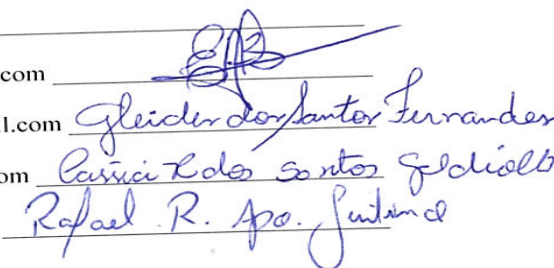 com
l.com Gleider dos Santos Fernandes
om Cassia R dos Santos
Rafael R. Apo.